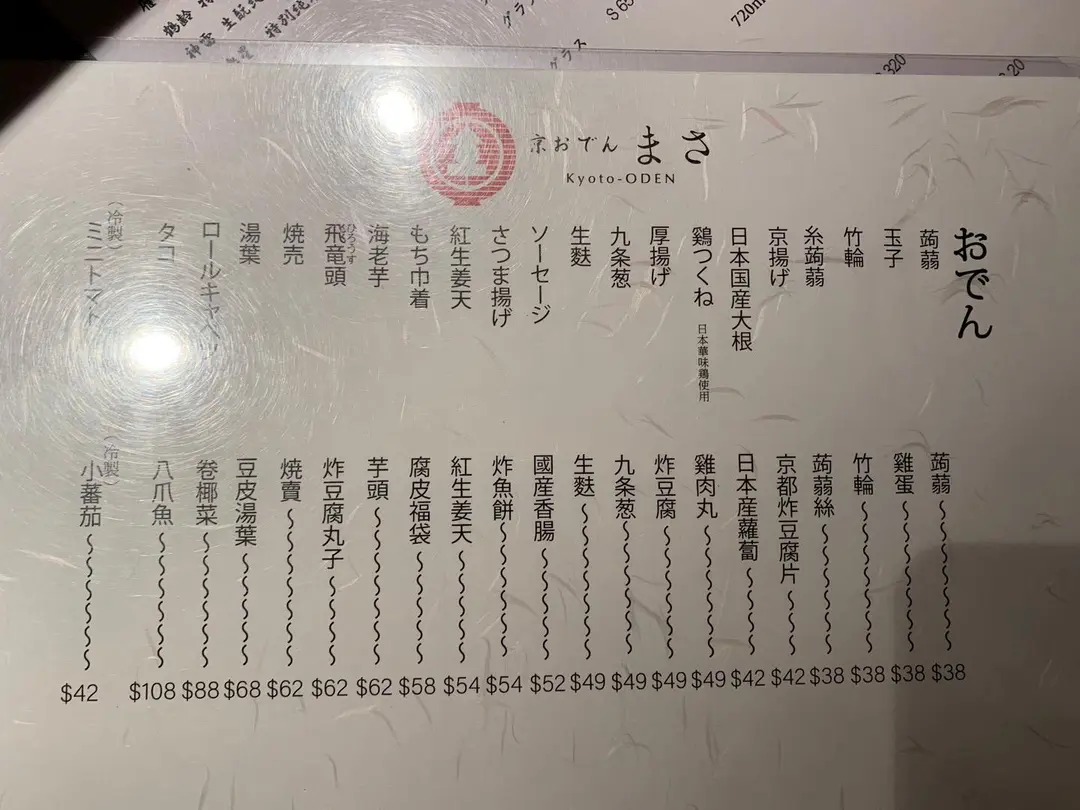 グラス
720m
グラス
京おでん まさ
Kyoto-ODEN
おでん
蒟蒻
玉子
竹輪
糸蒟蒻
京揚げ
日本国産大根
鶏つくね 日本華味鶏使用
厚揚げ
九条葱
生麩
ソーセージ
さつま揚げ
紅生姜天
もち巾着
海老芋
飛竜頭 ひろうす
焼売
湯葉
ロールキャベツ
タコ
（冷製）
ミニトマト
蒟蒻 $38
雞蛋 $38
竹輪 $38
蒟蒻絲 $38
京都炸豆腐片 $42
日本産蘿蔔 $42
雞肉丸 $49
炸豆腐 $49
九条葱 $49
生麩 $49
國産香腸 $52
炸魚餅 $54
紅生姜天 $54
腐皮福袋 $58
芋頭 $62
炸豆腐丸子 $62
燒賣 $62
豆皮湯葉 $68
卷椰菜 $88
八爪魚 $108
（冷製）
小蕃茄 $42